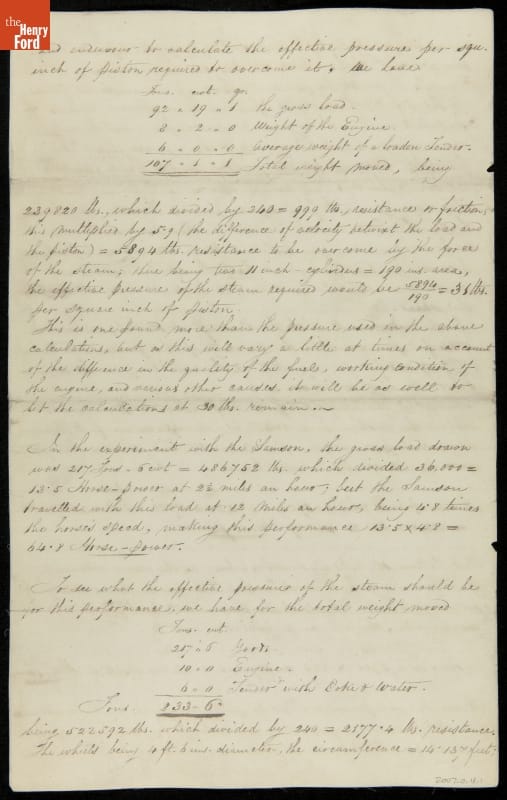 the
Henry
Ford
and endeavour to calculate the effective pressure per squ-
inch of piston required to overcome it, we have
Tns. cwt. qr.
92 „ 19 „ 1 the gross load.
8 „ 2 „ 0 Weight of the Engine.
6 „ 0 „ 0 Average weight of a loaden Tender.
107 „ 1 „ 1 Total weight moved, being
239820 lbs., which divided by 240 = 999 lbs. resistance or friction,
this multiplied by 5.9 (the difference of velocity betwixt the load and
the piston) = 5894 lbs. resistance to be overcome by the force
of the steam; there being two 11 inch cylinders = 190 ins. area,
the effective pressure of the steam required would be 5894/190 = 31 lbs.
per square inch of piston.
This is one pound more than the pressure used in the above
calculations, but as this will vary a little at times on account
of the difference in the quality of the fuels, working condition of
the engine, and various other causes it will be as well to
let the calculations at 30 lbs. remain.
In the experiment with the Samson, the gross load drawn
was 217 Tons - 6 cwt = 486752 lbs. which divided 36,000 =
13.5 Horse-power at 2½ miles an hour; but the Samson
travelled with this load at 12 Miles an hour, being 4.8 times
the horses speed, making this performance 13.5 x 4.8 =
64.8 Horse-power.
To see what the effective pressure of the steam should be
for this performance, we have for the total weight moved
Tons. cwt.
217 „ 6 Goods.
10 „ 0 Engine.
6 „ 0 Tender with Coke & Water.
Tons. 233 - 6
being 522592 lbs. which divided by 240 = 2177.4 lbs. resistance.
The wheels being 4 ft. 6 ins. diameter, the circumference = 14.137 feet;